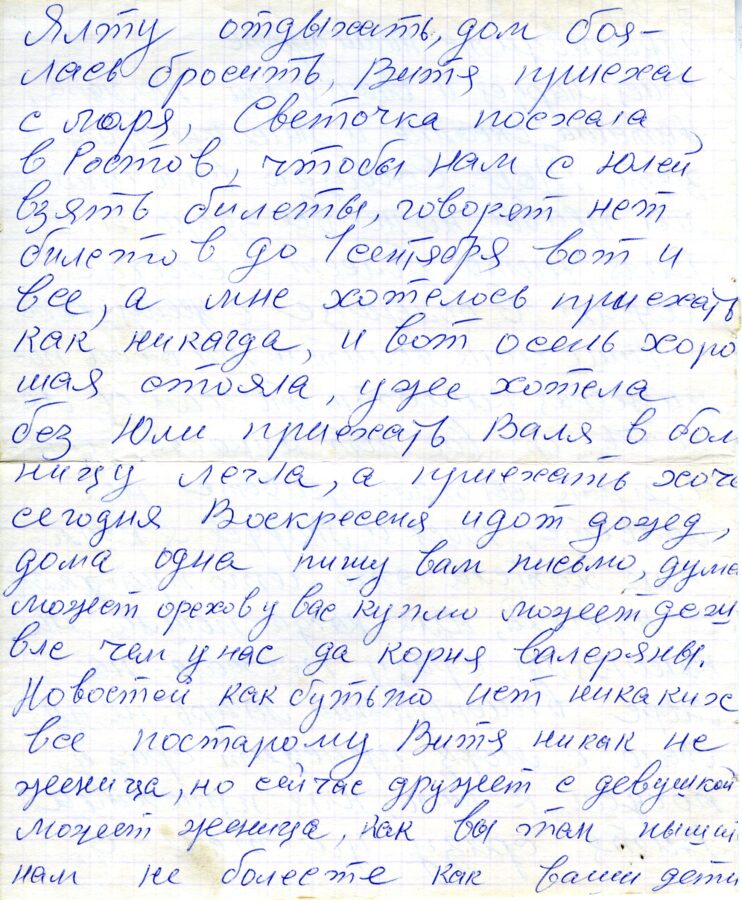 Ялту отдыхать, дом боя-
лась бросить, Витя приехал
с моря, Светочка поехала
в Ростов, чтобы нам с Юлей
взять билеты, говорят нет
билетов до 1 сентября вот и
все, а мне хотелось приехать
как никагда, и вот осень хоро
шая стояла, уже хотела
без Юли приехать Валя в бол
ницу легла, а приехать хоч
сегодня Воскресеня идот дожед,
дома одна пишу вам письмо, дума
может орехов у вас куплю может деш
вле чем у нас да корня валеряны.
Новостей как бутьто нет никаких
все постарому Витя никак не
женица, но сейчас дружет с девушкой
может женица, как вы там пиши
нам не болеете как ваши дети